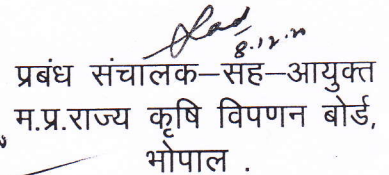 8.12.20
प्रबंध संचालक–सह–आयुक्त
म.प्र.राज्य कृषि विपणन बोर्ड,
भोपाल .